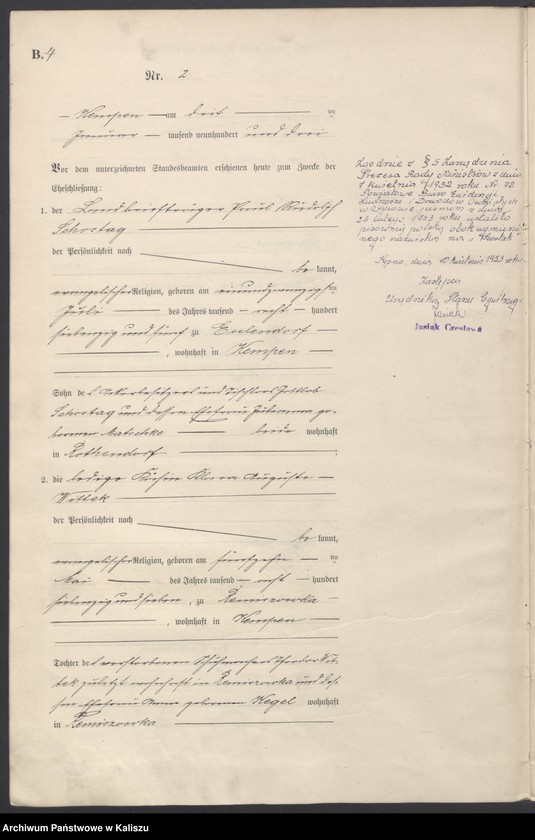 B. 4
Nr. 2
Kempen am drei ten
Januar tausend neunhundert und drei
Vor dem unterzeichneten Standesbeamten erschienen heute zum Zwecke der
Eheschließung:
1. der Landbriefträger Paul Rudolph
Schostag
der Persönlichkeit nach
be kannt,
evangelischer Religion, geboren am einundzwanzigsten
Juli des Jahres tausend acht hundert
siebenzig und fünf zu Eulendorf
, wohnhaft in Kempen
Sohn des Ackerbesitzers und Tischlers Gottlob
Schostag und dessen Ehefrau Julianna ge-
borenen Matschke beide wohnhaft
in Rothendorf ;
2. die ledige Köchin Klara Auguste
Wittek
der Persönlichkeit nach
be kannt,
evangelischer Religion, geboren am fünfzehn ten
Mai des Jahres tausend acht hundert
siebenzig und sieben, zu Remiszowka
, wohnhaft in Kempen
Tochter des verstorbenen Schuhmachers Theodor Wit-
tek zuletzt wohnhaft in Remiszowka und des-
sen Ehefrau Anna geborenen Kegel wohnhaft
in Remiszowka
Zgodnie z § 5 Zarządzenia
Prezesa Rady Ministrów z dnia
7 kwietnia 1952 roku Nr. 72
Powiatowe Biuro Ewidencji
Ludności i Dowodów Osobistych
w Kępnie pismem z dnia
25 lutego 1953 roku ustaliło
pisownię polską obok wymienio-
nego nazwiska na "Szostak"
Kępno, dnia 10 kwietnia 1953 roku.
Zastępca
Urzędnika Stanu Cywilnego
Jasiak Czesława
Archiwum Państwowe w Kaliszu